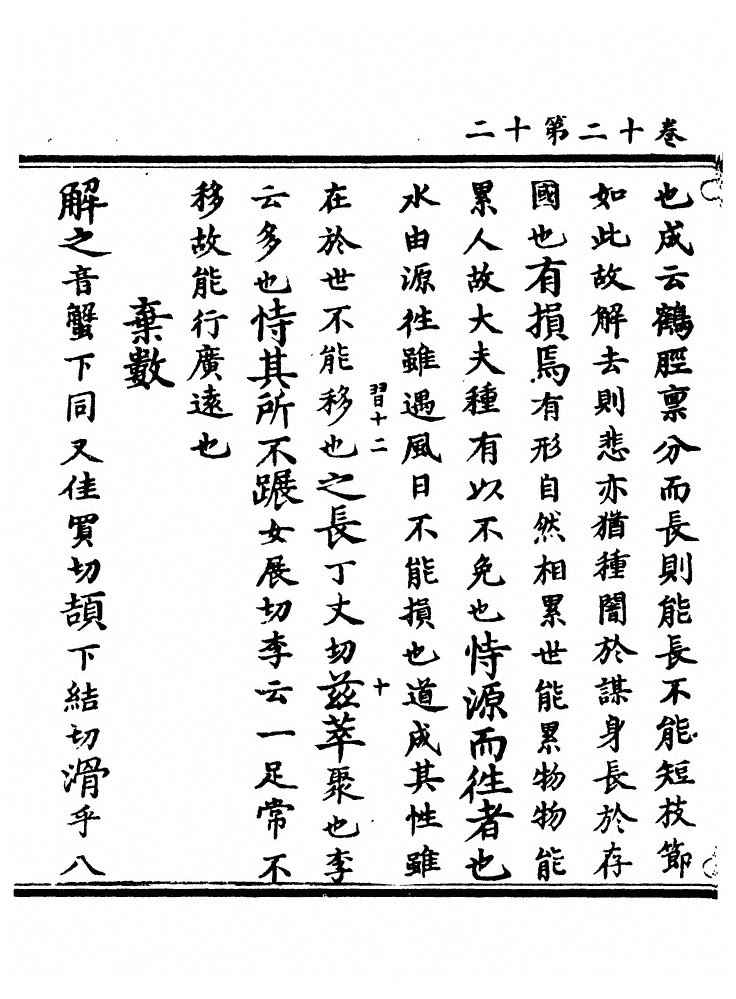 卷十二第十二
也成云鶴脛稟分而長則能長不能短技節
如此故解去則悲亦猶種闇於謀身長於存
國也有損焉有形自然相累世能累物物能
累人故大夫種有以不免也恃源而徃者也
水由源徃雖遇風日不能損也道成其性雖
在於世不能移也之長丁丈切茲萃聚也李
習十二
十
云多也恃其所不蹍女展切李云一足常不
移故能行廣遠也
棄數
解之音蟹下同又佳買切頡下結切滑乎八